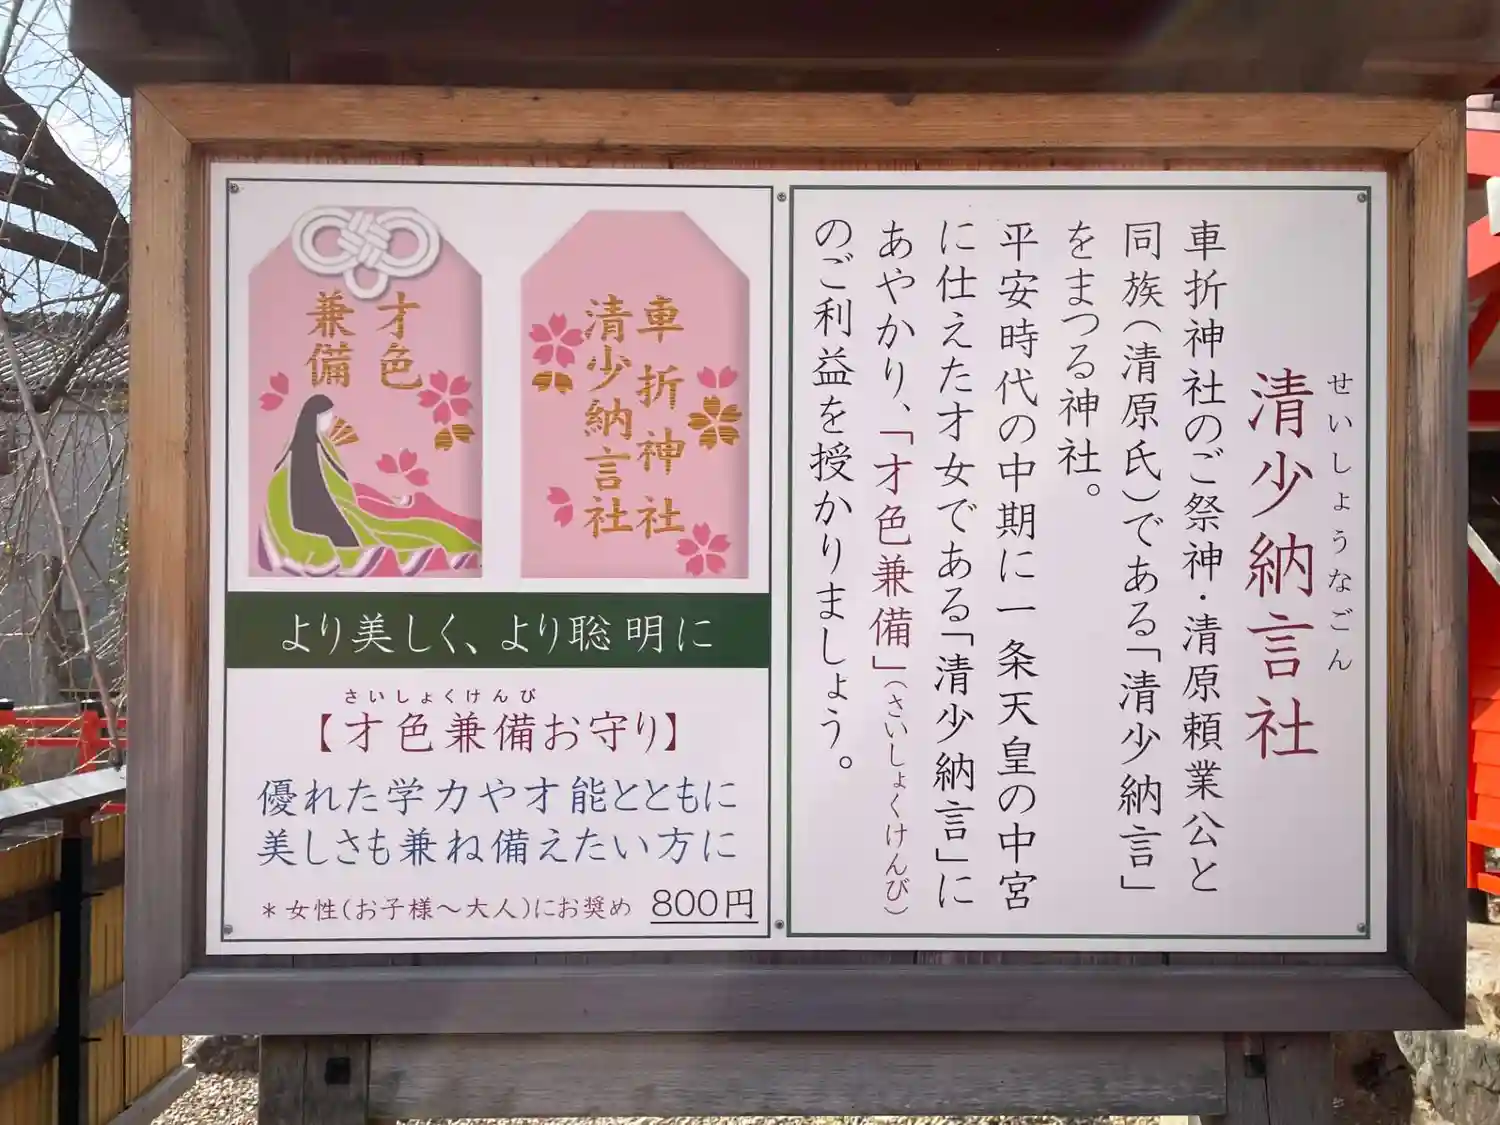 せいしょうなごん
清少納言社
車折神社のご祭神・清原頼業公と
同族(清原氏)である「清少納言」
をまつる神社。
平安時代の中期に一条天皇の中宮
に仕えた才女である「清少納言」に
あやかり、「才色兼備」(さいしょくけんび)
のご利益を授かりましょう。
才色
兼備
車折神社
清少納言社
より美しく、より聡明に
さいしょくけんび
【才色兼備お守り】
優れた学力や才能とともに
美しさも兼ね備えたい方に
*女性(お子様〜大人)にお奨め 800円